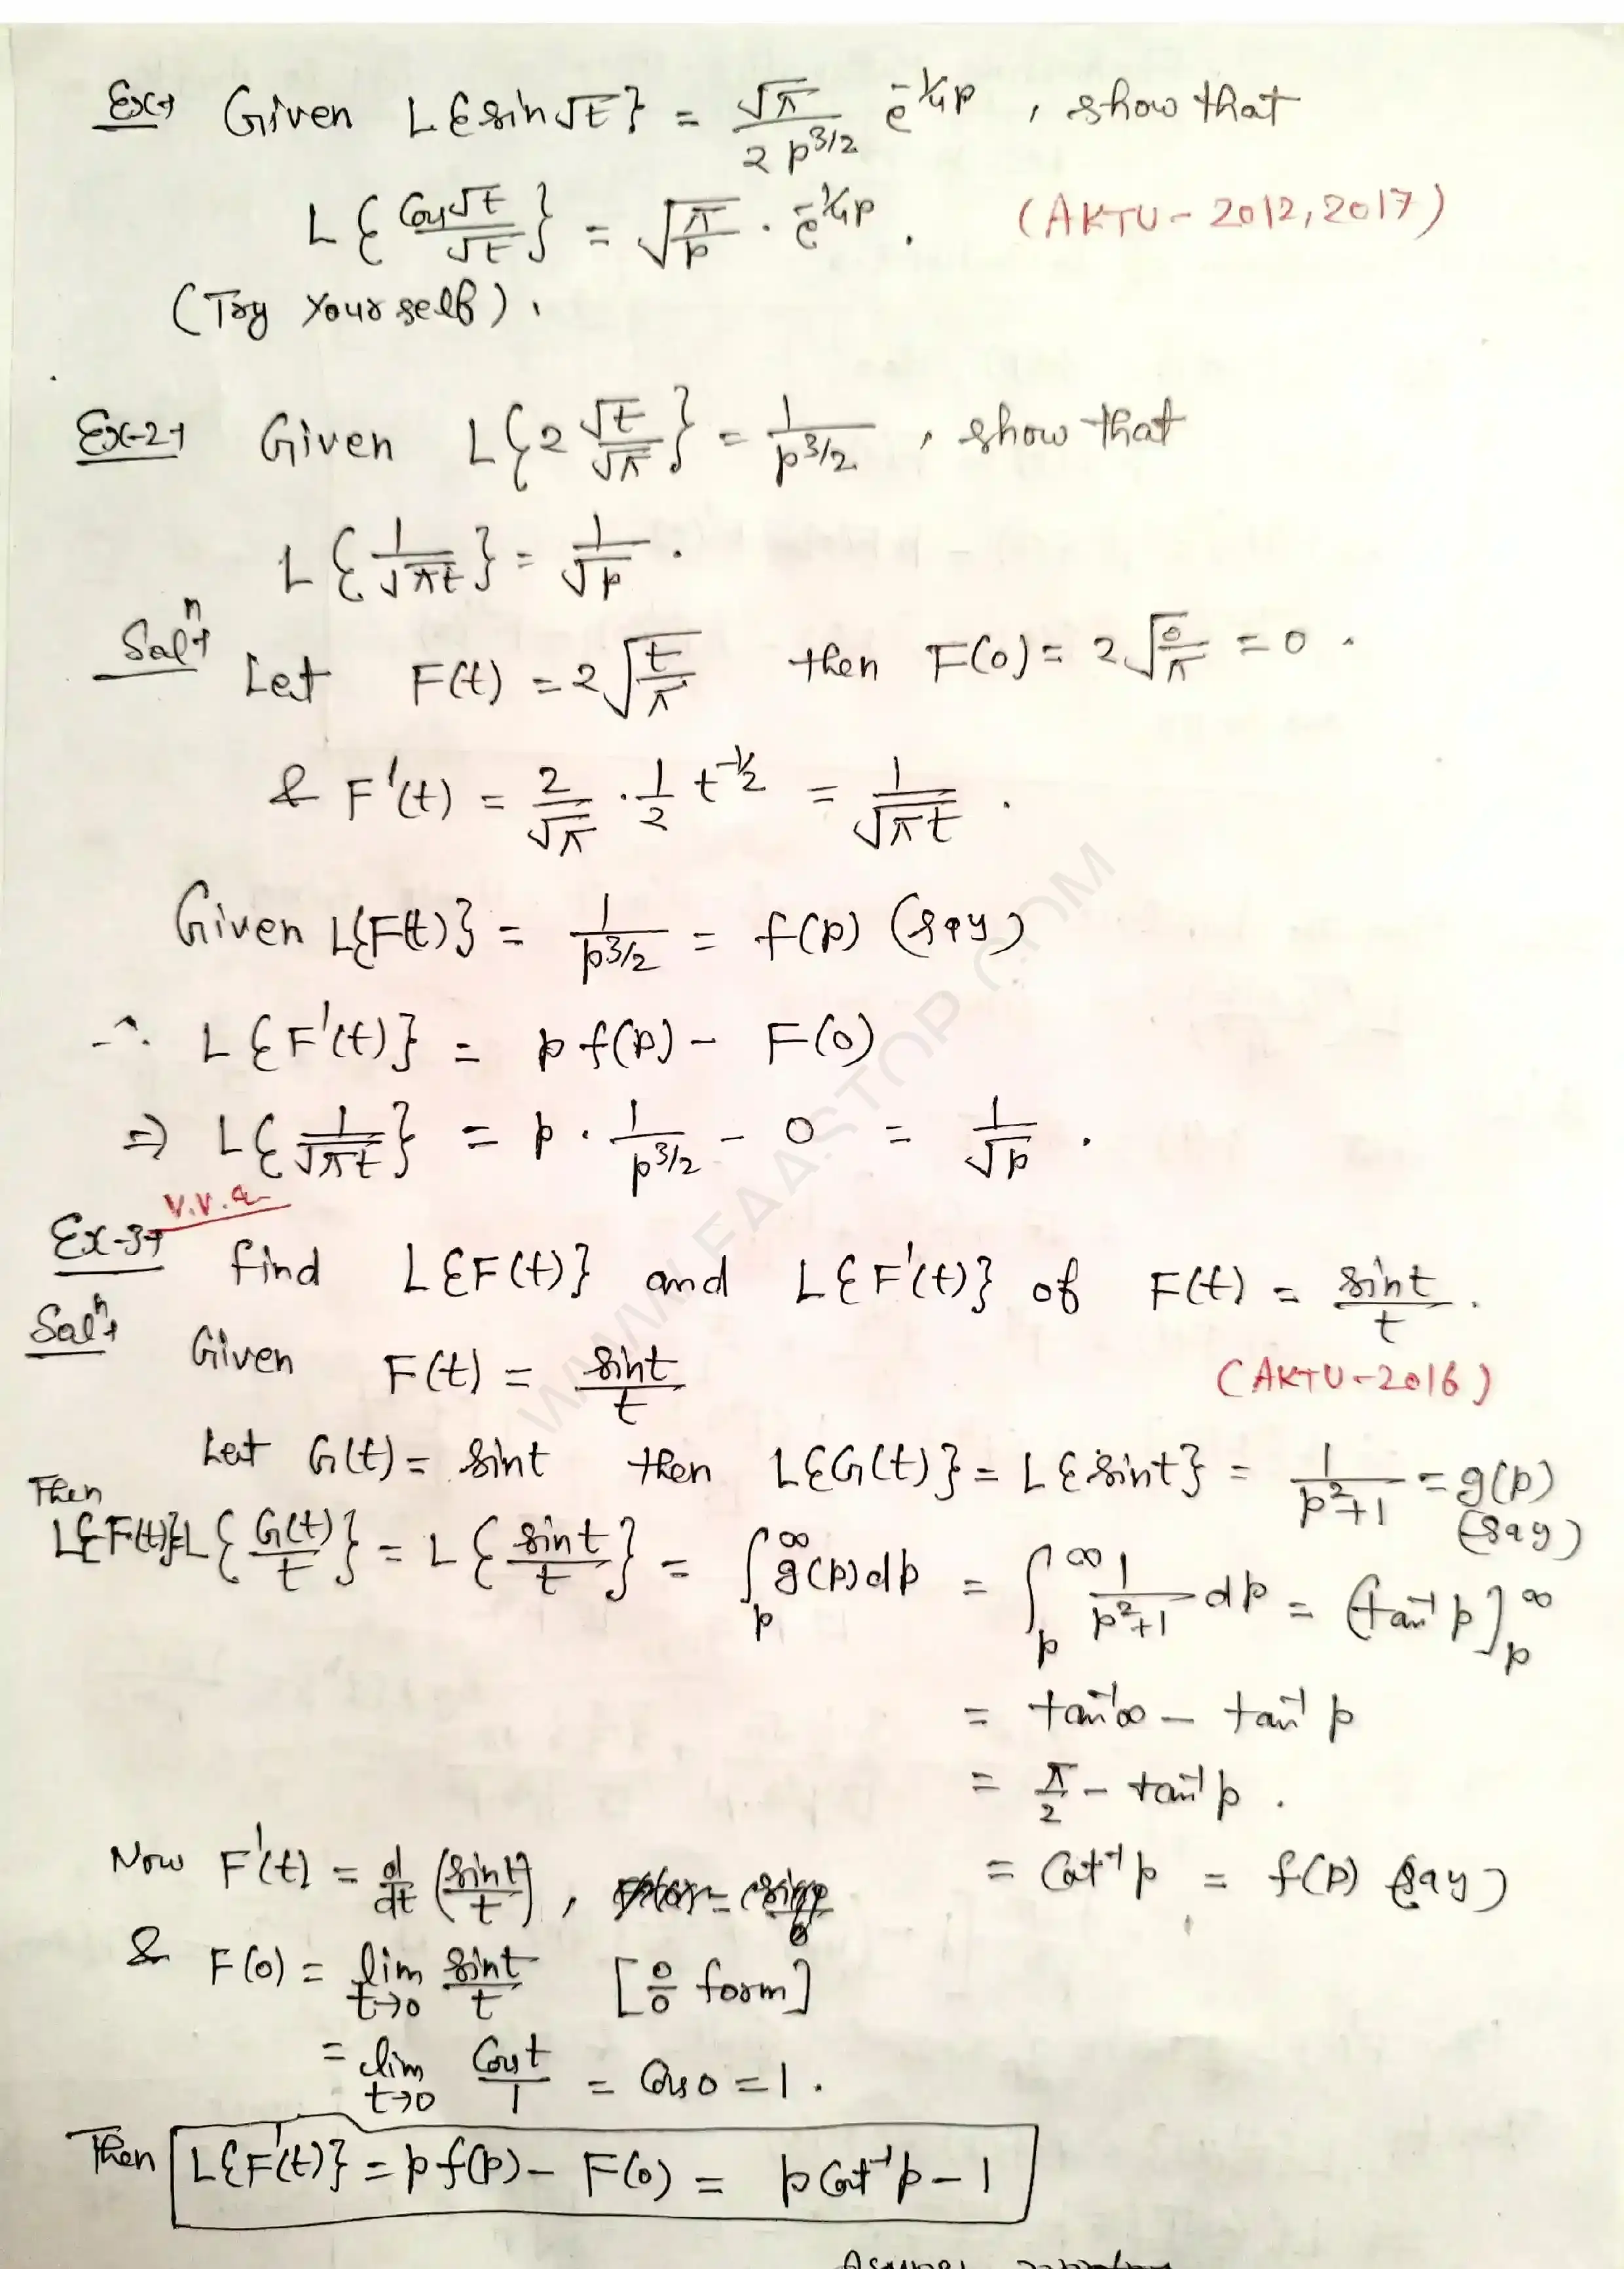 Ex→ Given L{sin√t} = √π/(2 p^3/2) e^-1/4p , show that
L{Cos√t/√t} = √(π/p) · e^-1/4p . (AKTU - 2012, 2017)
(Try Yourself).
Ex-2→ Given L{2 √t/√π} = 1/p^3/2 , show that
L{1/√πt} = 1/√p .
Solⁿ→ Let F(t) = 2√(t/π) then F(0) = 2√(0/π) = 0 .
& F'(t) = 2/√π · 1/2 t^-1/2 = 1/√πt .
Given L{F(t)} = 1/p^3/2 = f(p) (say)
∴ L{F'(t)} = p f(p) - F(0)
⇒ L{1/√πt} = p · 1/p^3/2 - 0 = 1/√p .
Ex-3→ find L{F(t)} and L{F'(t)} of F(t) = sint/t .
Solⁿ→ Given F(t) = sint/t (AKTU-2016)
Let G(t) = sint then L{G(t)} = L{sint} = 1/(p²+1) = g(p) (say)
Then
L{F(t)}=L{G(t)/t} = L{sint/t} = ∫_p^∞ g(p)dp = ∫_p^∞ 1/(p²+1) dp = [tan⁻¹ p]_p^∞
= tan⁻¹∞ - tan⁻¹ p
= π/2 - tan⁻¹p .
= Cot⁻¹p = f(p) (say)
Now F'(t) = d/dt (sint/t) ,
& F(0) = lim t→0 sint/t [0/0 form]
= lim t→0 Cost/1 = Cos0 = 1 .
Then L{F'(t)} = p f(p) - F(0) = p Cot⁻¹p - 1
WWW.FAASTOP.COM